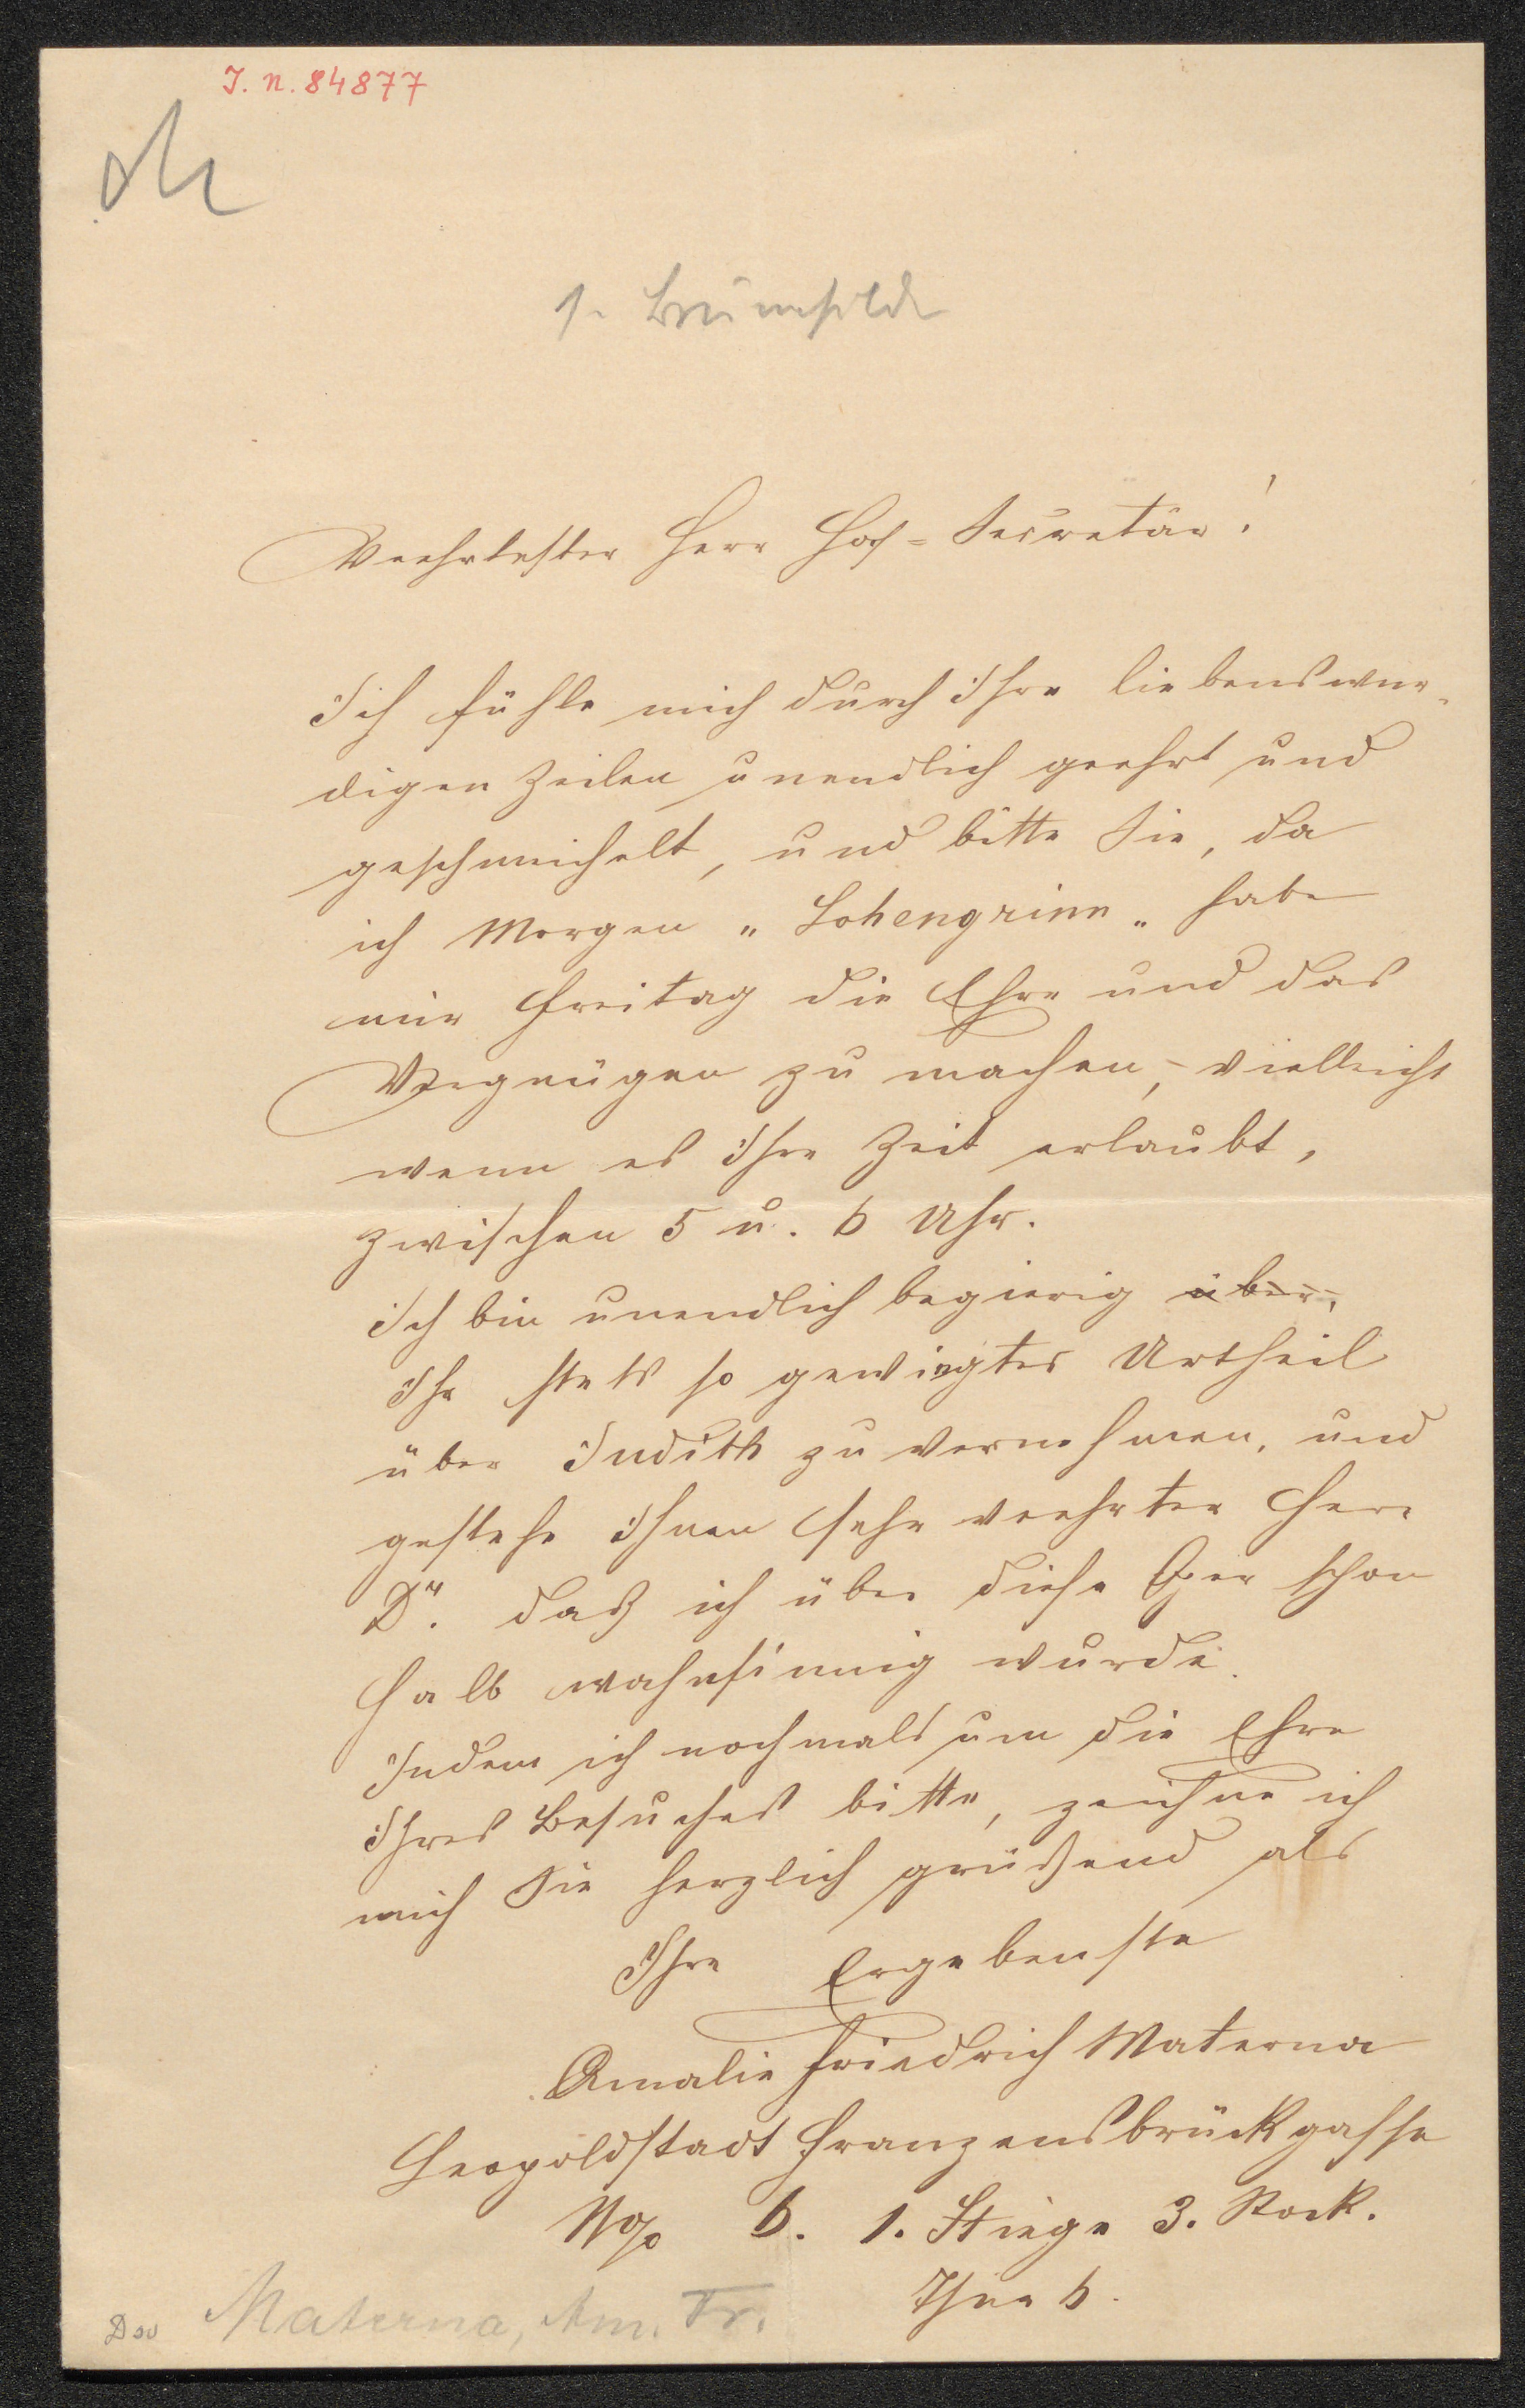 I. N. 84877
1. Brünhilde
Verehrtester Herr Hof=Secretär!
Ich fühle mich durch Ihre liebenswür-
digen Zeilen unendlich geehrt und
geschmeichelt, und bitte Sie, da
ich Morgen „Lohengrinn„ habe
mir Freitag die Ehre und das
Vergnügen zu machen, – vielleicht
wenn es Ihre Zeit erlaubt,
zwischen 5 u. 6 Uhr.
Ich bin unendlich begierig über,
Ihr stets so gewiegtes Urtheil
über Judith zu vernehmen, und
gestehe Ihnen sehr verehrter Herr
Dr. daß ich über diese Oper schon
halb wahnsinnig wurde.
Indem ich nochmals um die Ehre
Ihres Besuches bitte, zeichne ich
mich Sie herzlich grüßend als
Ihre Ergebenste
Amalie Friedrich Materna
Leopoldstadt Franzensbrückgasse
No 6. 1. Stiege 3. Stock.
Thür 6.
Materna, Am. Fr.